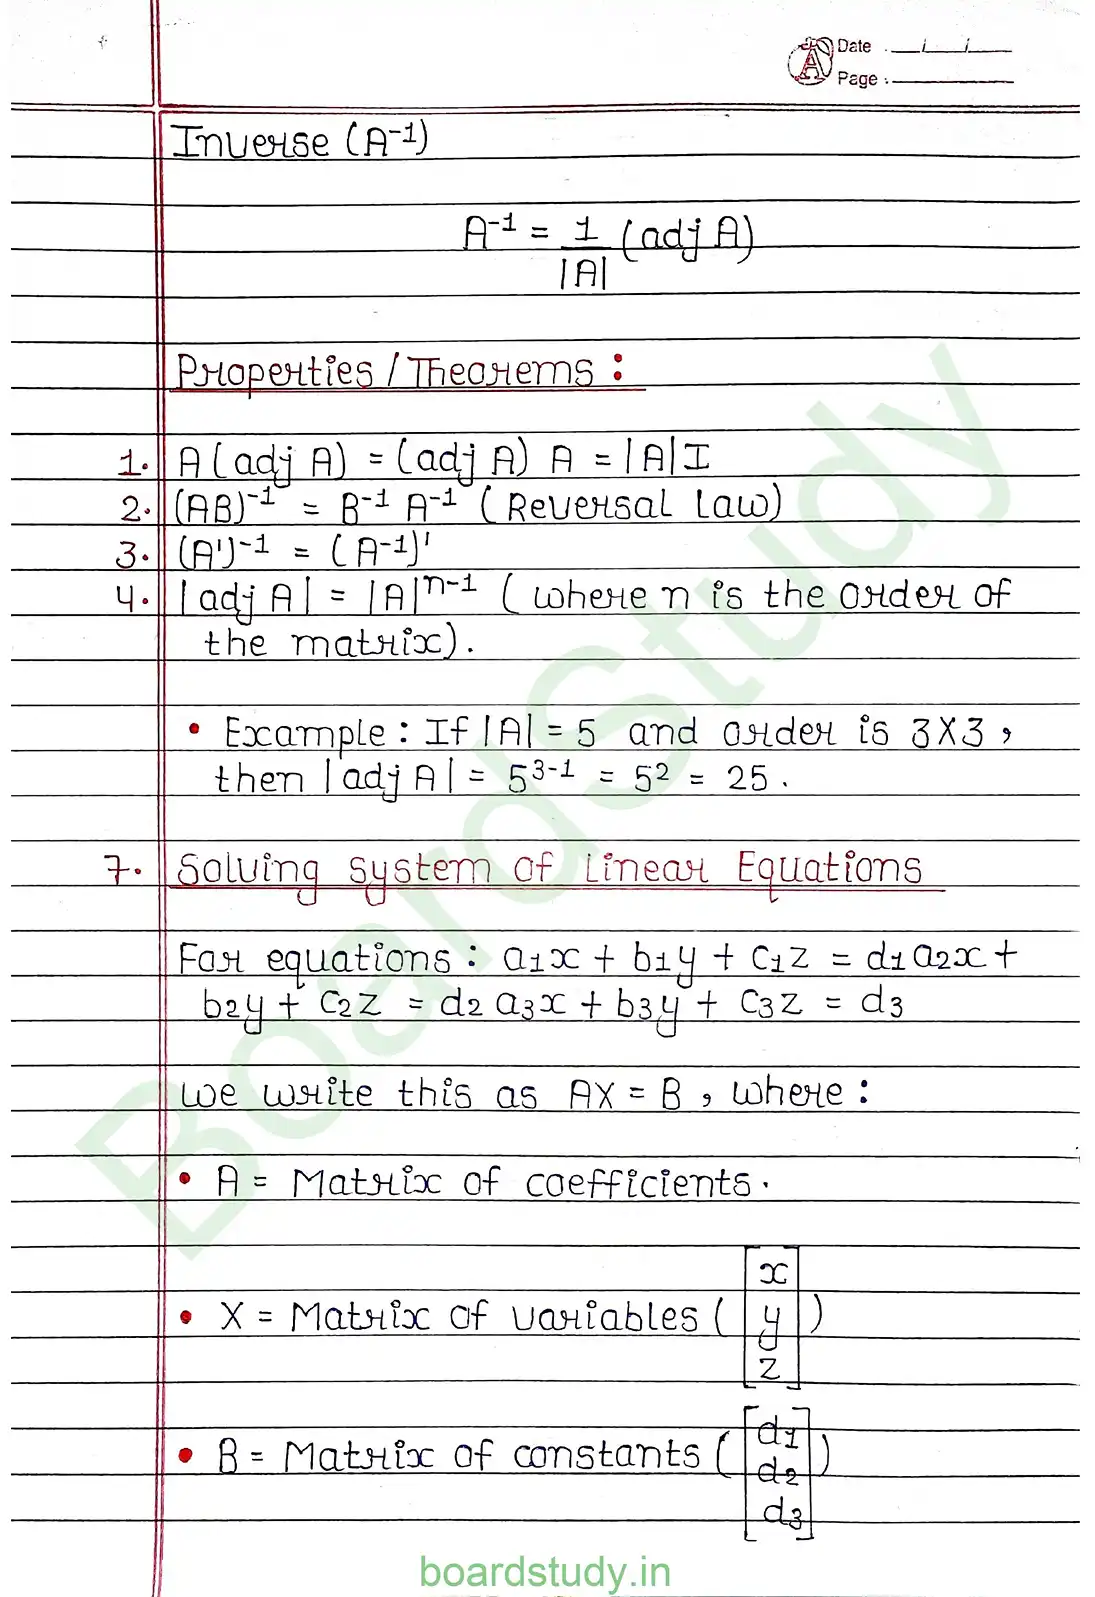 Date : __/__/__
Page :
Inverse (A⁻¹)
A⁻¹ = 1/|A| (adj A)
Properties / Theorems :
1. A (adj A) = (adj A) A = |A| I
2. (AB)⁻¹ = B⁻¹ A⁻¹ (Reversal Law)
3. (A')⁻¹ = (A⁻¹)'
4. |adj A| = |A|ⁿ⁻¹ (where n is the order of
the matrix).
• Example : If |A| = 5 and order is 3X3,
then |adj A| = 5³⁻¹ = 5² = 25.
7. Solving system of Linear Equations
For equations : a₁x + b₁y + c₁z = d₁ a₂x +
b₂y + c₂z = d₂ a₃x + b₃y + c₃z = d₃
we write this as AX = B, where :
• A = Matrix of coefficients.
• X = Matrix of variables ([x
y
z])
• B = Matrix of constants ([d₁
d₂
d₃])
BoardStudy
boardstudy.in